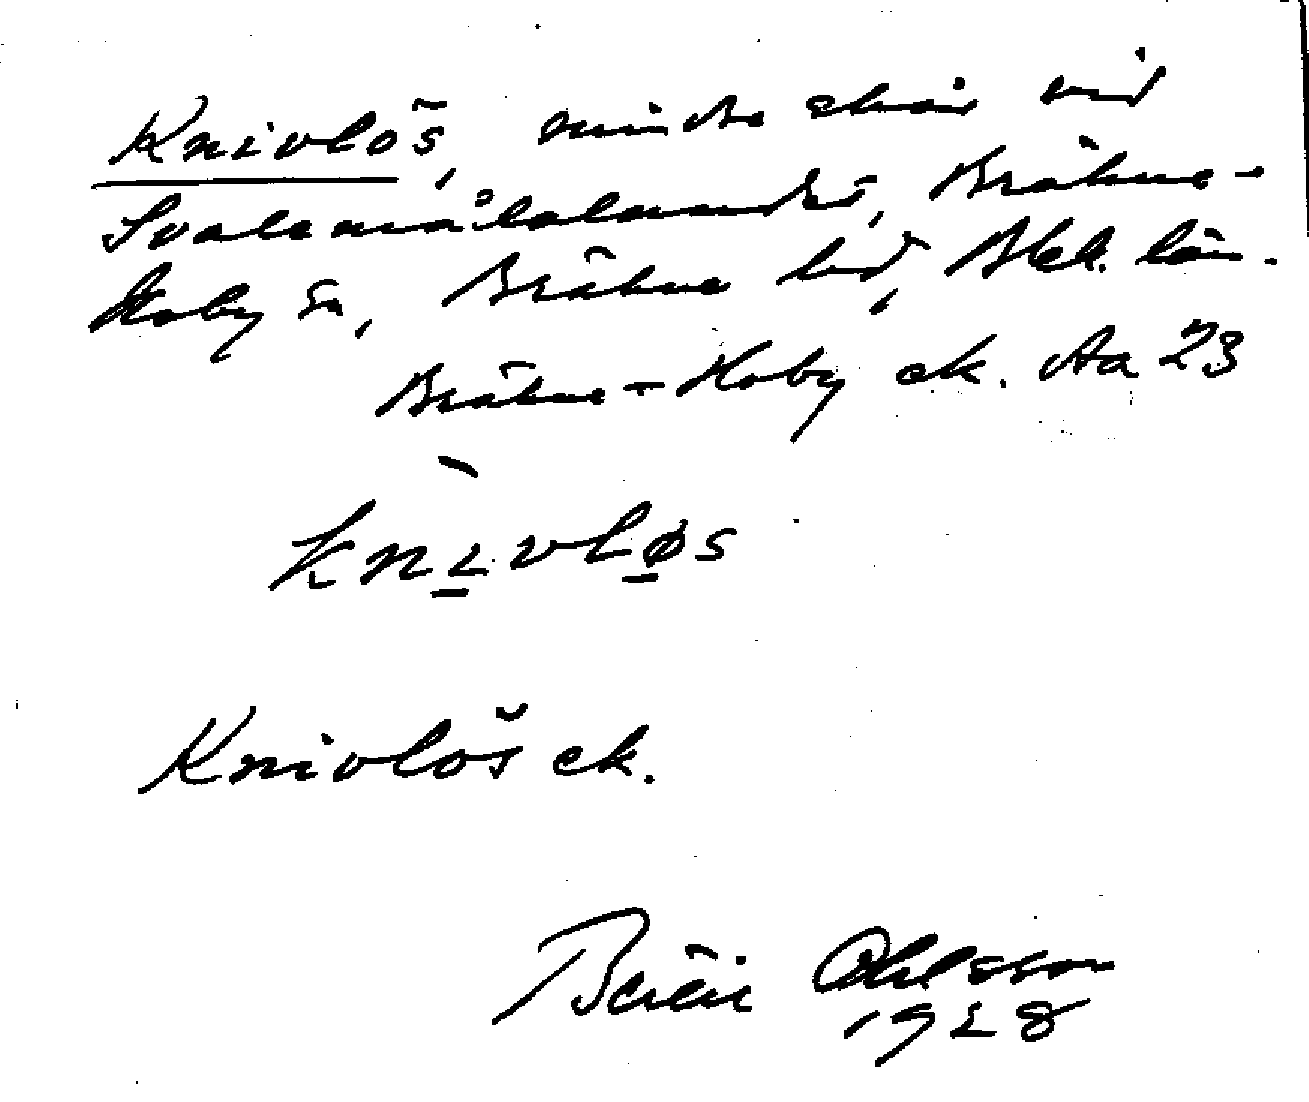 Knivlös, mindre skär vid
Svalemålalandet, Bräkne-
Hoby sn, Bräkne hd, Blek. län.
Bräkne-Hoby ek. Aa 23
knivløs
Knivlös ek.
Ohlsson
1928